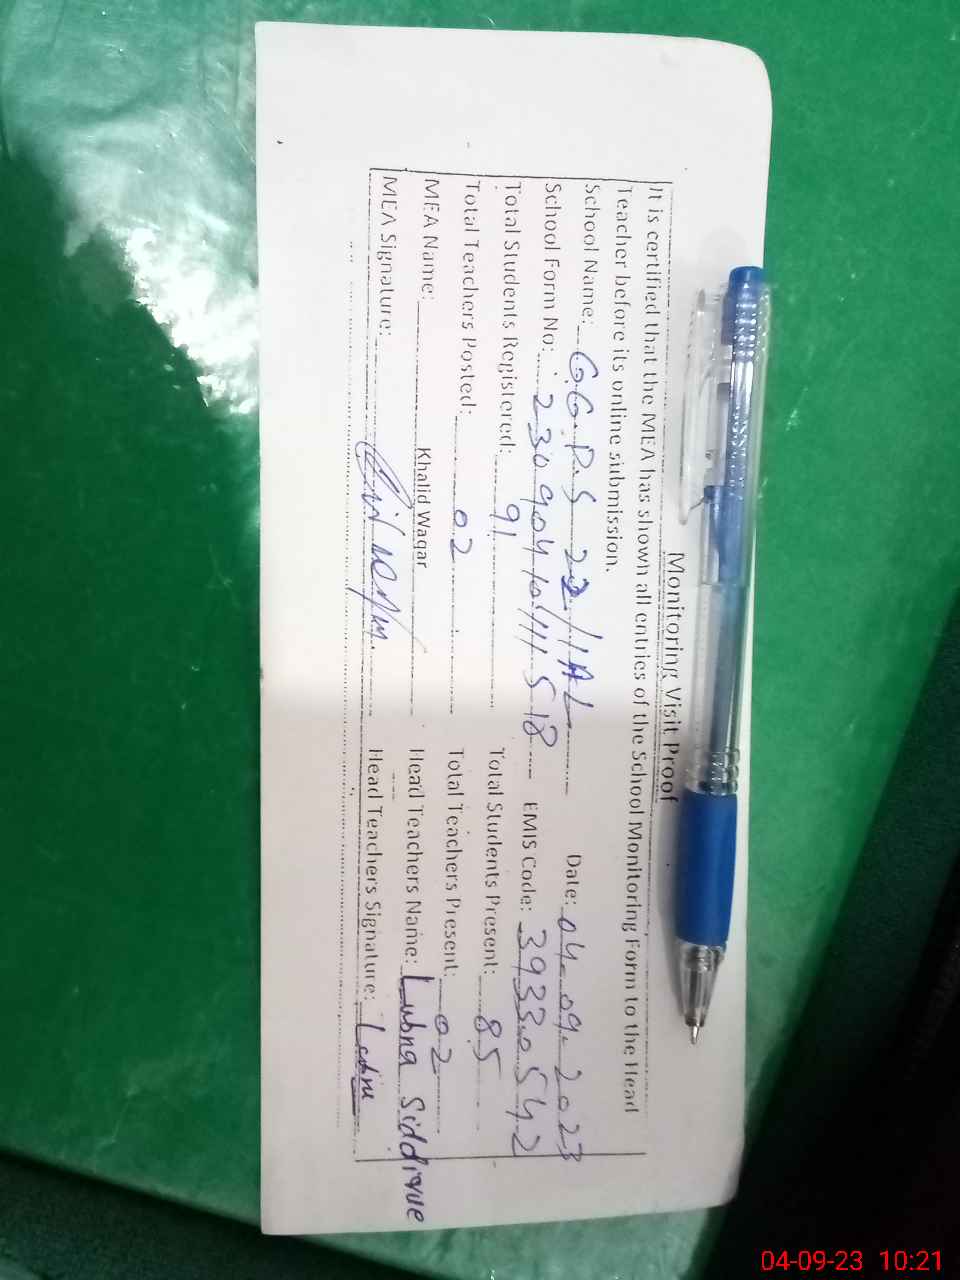 Monitoring Visit Proof
It is certified that the MEA has shown all entries of the School Monitoring Form to the Head
Teacher before its online submission.
School Name: G.G.P.S 22/1AL Date: 04.09.2023
School Form No: 230904 EMIS Code: 39330542
Total Students Registered: 91 Total Students Present: 85
Total Teachers Posted: 02 Total Teachers Present: 02
MEA Name: Khalid Waqar Head Teachers Name: Lubna Siddique
MEA Signature: Head Teacher's Signature:
04-09-23 10:21